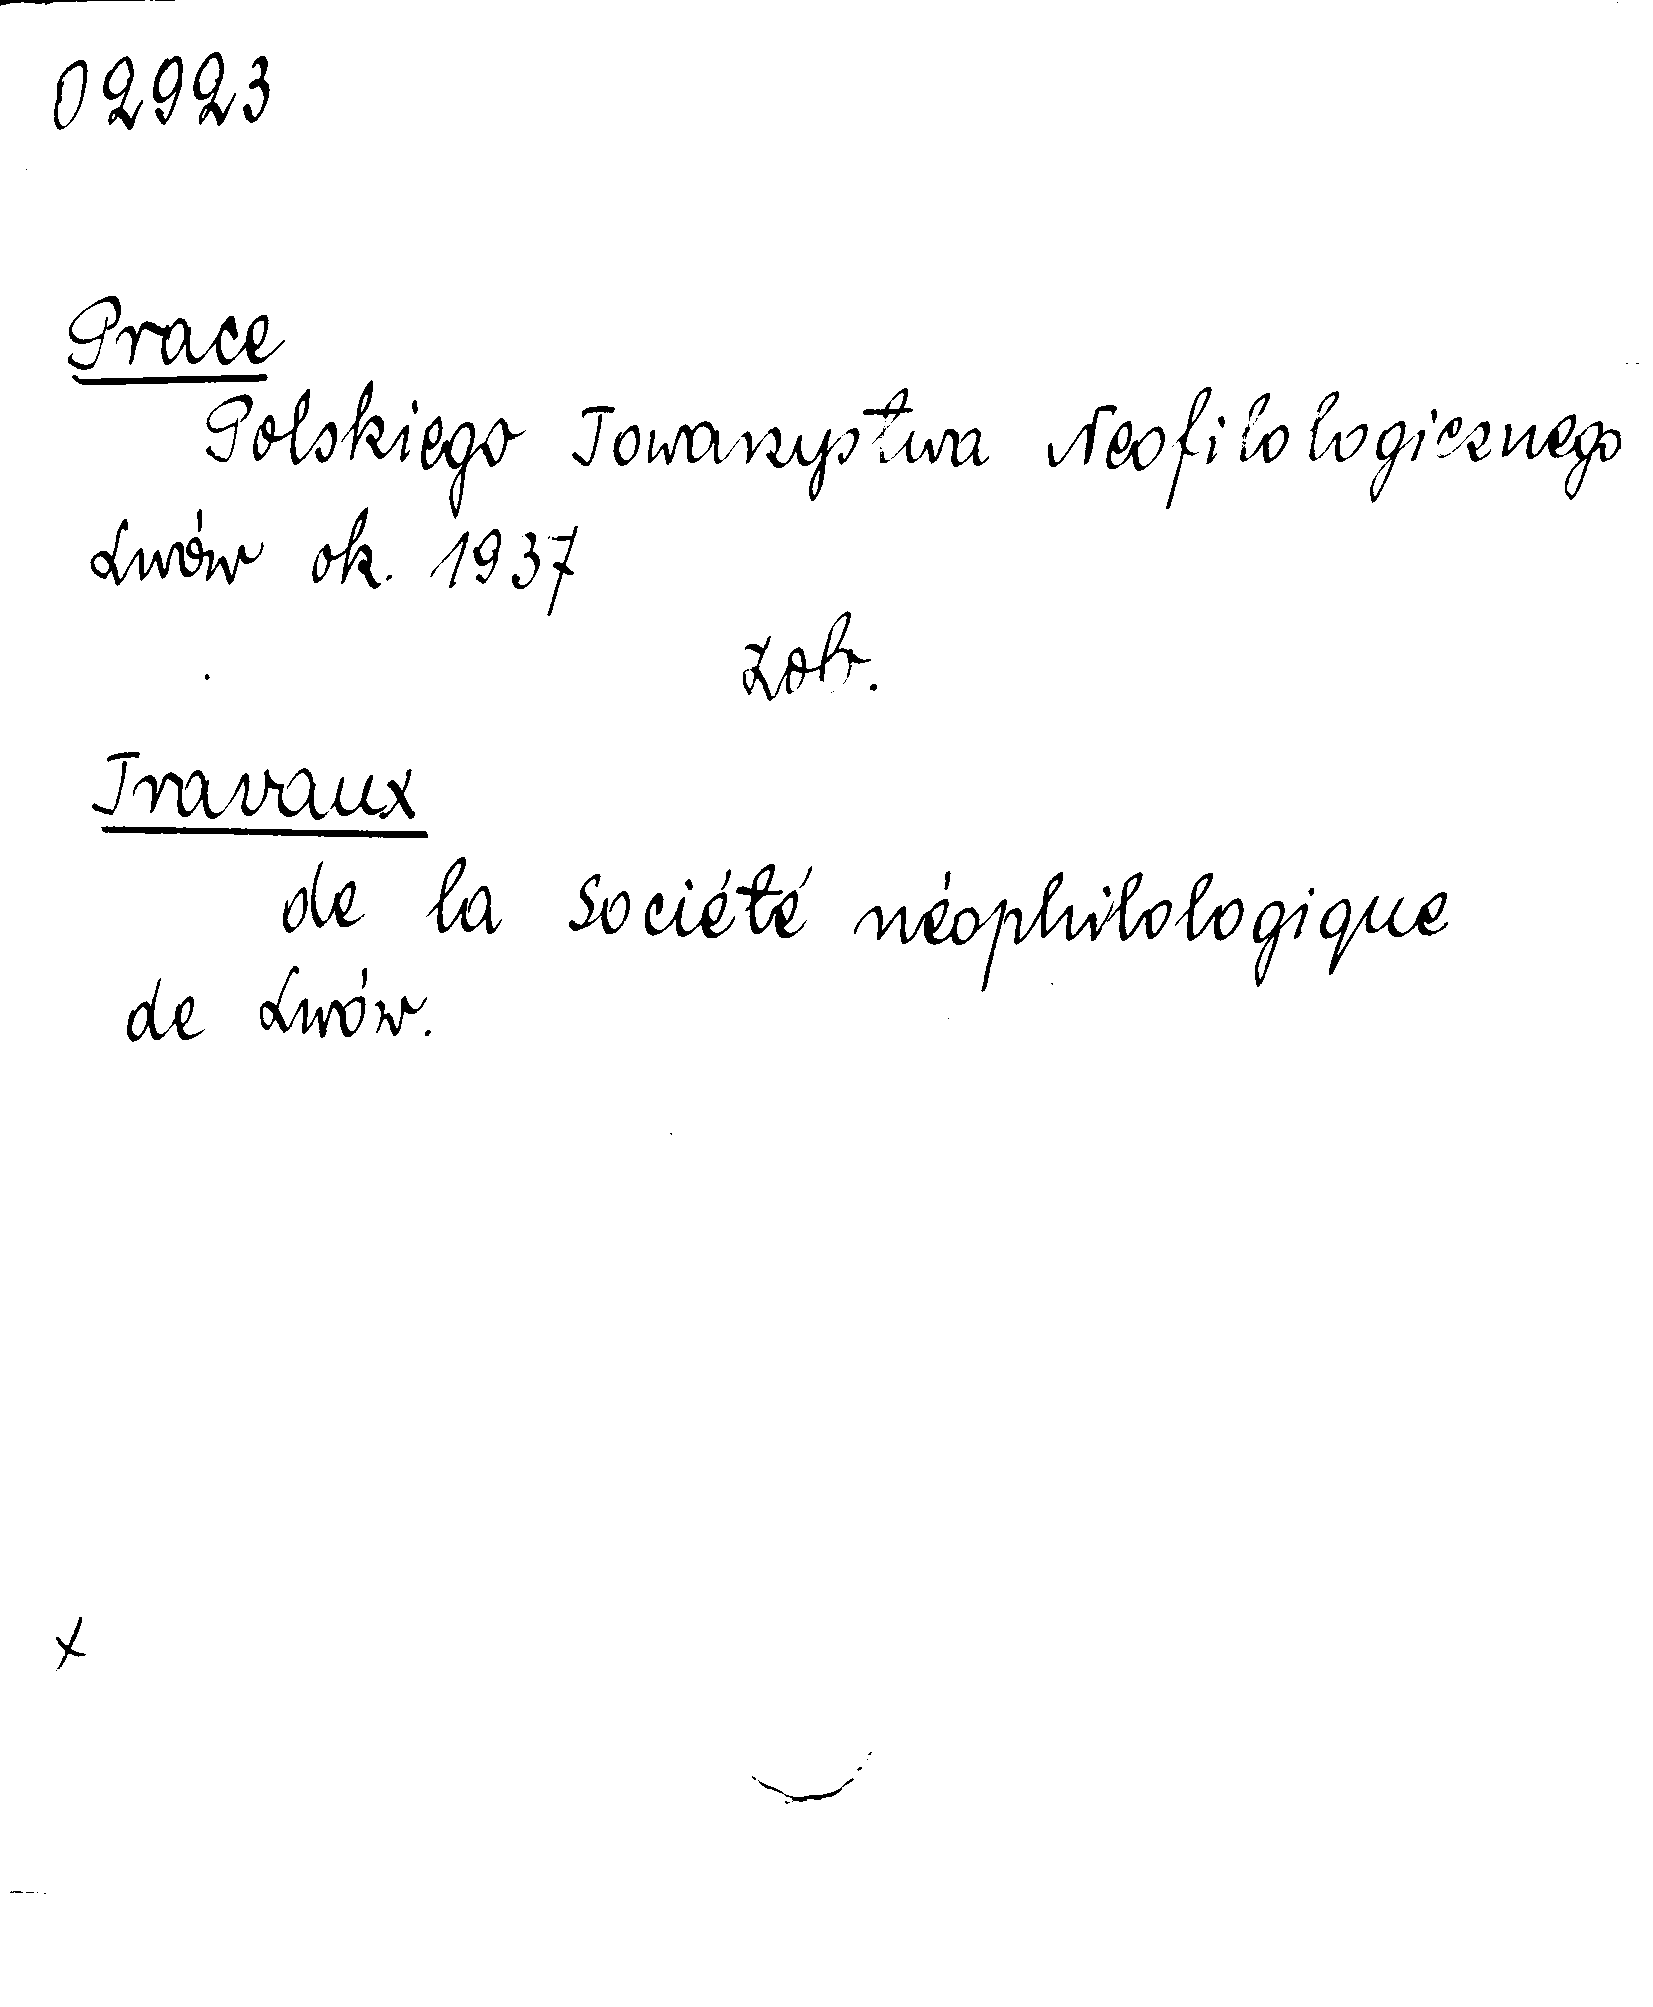 02923
Prace
Polskiego Towarzystwa Neofilologicznego
Lwów ok. 1937
zob.
Travaux
de la Société néophilologique
de Lwów.
x